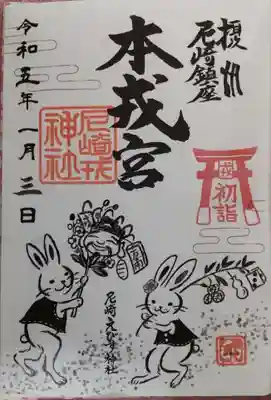 摂州
尼崎鎮座
本戎宮
令和五年一月三日
尼崎戎
神社
初詣
尼崎えびす神社